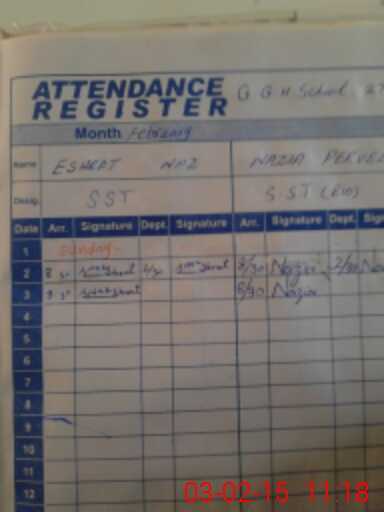 ATTENDANCE REGISTER G G H School 27
Month February
Name ESHRAT NAZ NAZIA PERVEE
Desig. SST S.ST (Bio)
Date Arr. Signature Dept. Signature Arr. Signature Dept. Sign
1 Sunday
2 8/30 Nazia 2/30 Na
3 8/30 Nazia
4
5
6
7
8
9
10
11
12
03-02-15 11:18